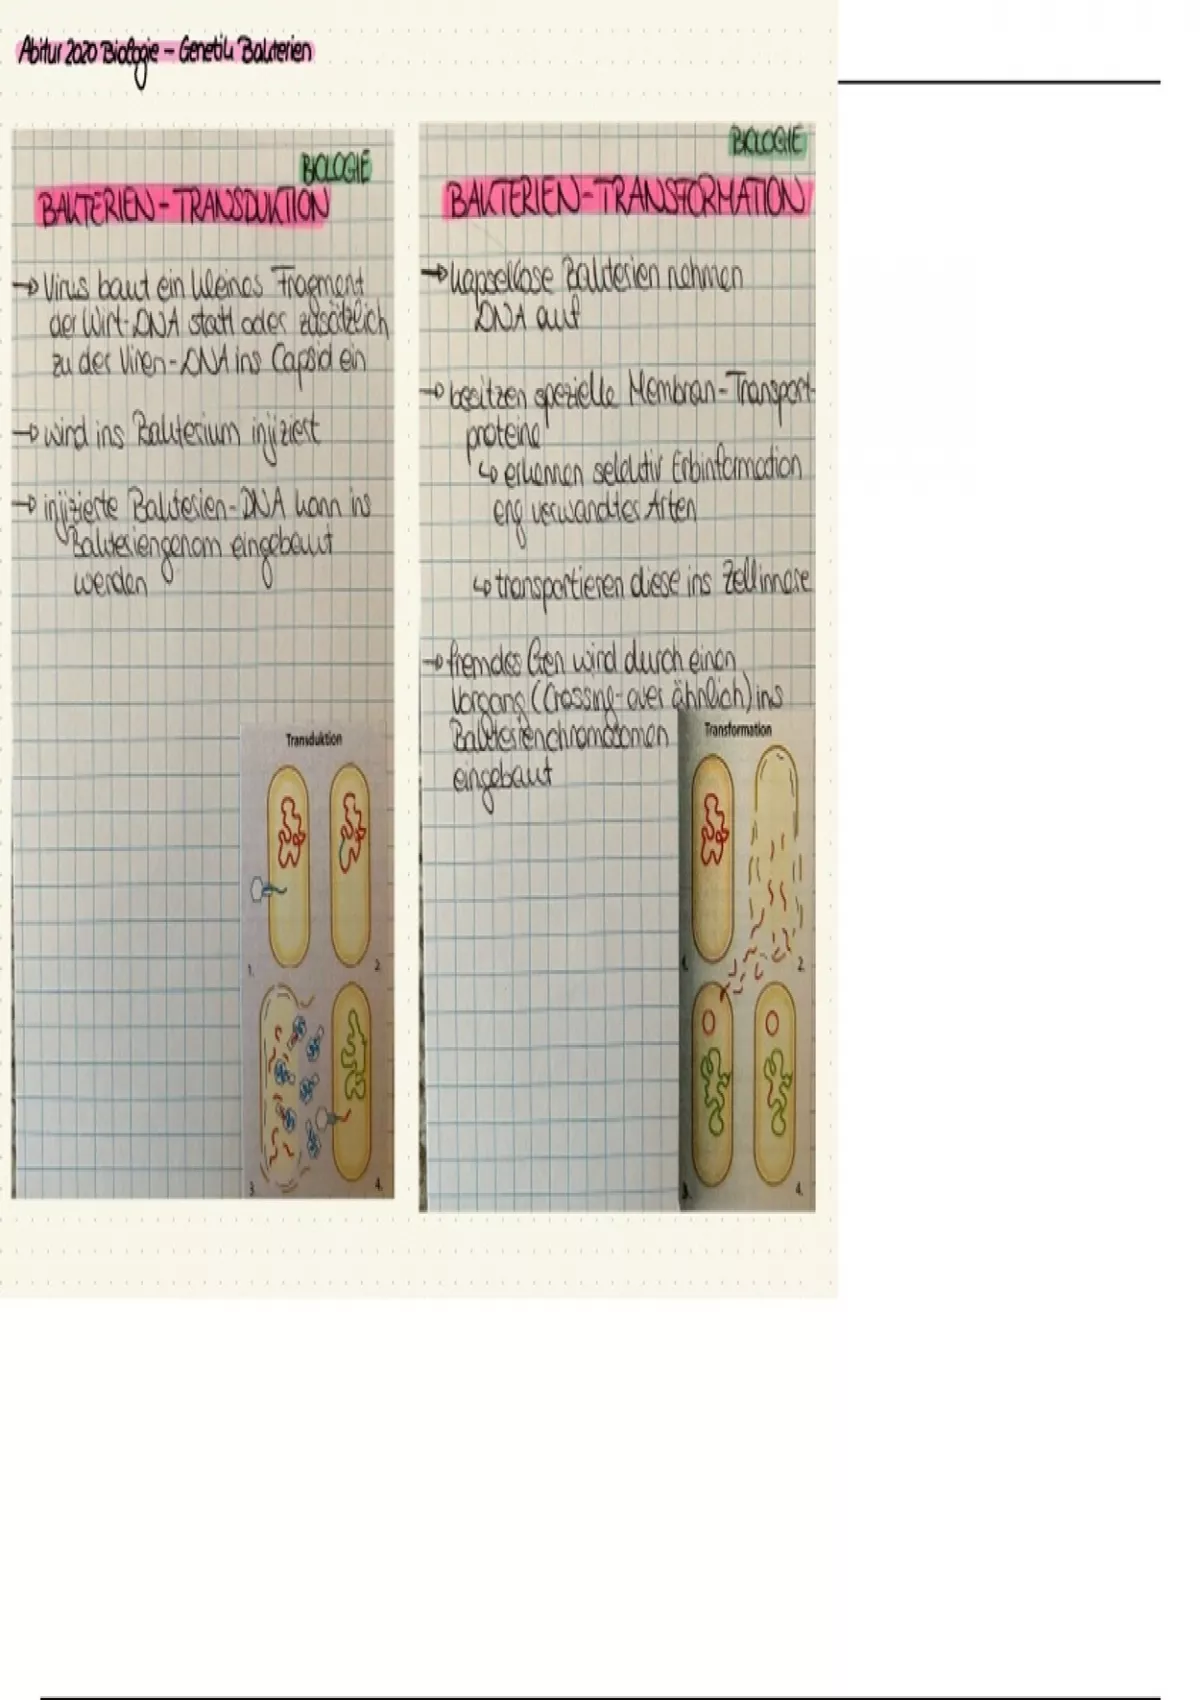 Abitur 2020 Biologie - Genetik Bakterien
BIOLOGIE
BAKTERIEN-TRANSDUKTION
→ Virus baut ein kleines Fragment
der Wirt-DNA statt oder zusätzlich
zu der Viren-DNA ins Capsid ein
→ wird ins Bakterium injiziert
→ injizierte Bakterien-DNA kann ins
Bakteriengenom eingebaut
werden
Transduktion
1.
2.
3.
4.
BIOLOGIE
BAKTERIEN-TRANSFORMATION
→ kapsellose Bakterien nehmen
DNA auf
→ besitzen spezielle Membran-Transport-
proteine
↳ erkennen selektiv Erbinformation
eng verwandter Arten
↳ transportieren diese ins Zellinnere
→ fremdes Gen wird durch einen
Vorgang (Crossing-over ähnlich) ins
Bakterienchromosomen
eingebaut
Transformation
1.
2.
3.
4.